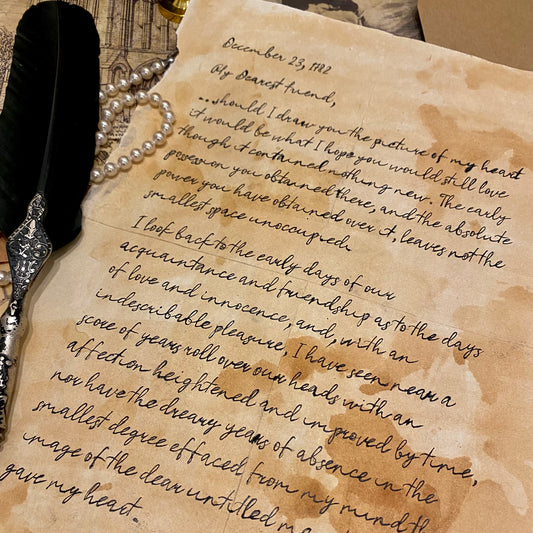 December 23, 1782
My Dearest Friend,
...should I draw you the picture of my heart
it would be what I hope you would still love
though it contained nothing new. The early
possession you obtained there, and the absolute
power you have obtained over it, leaves not the
smallest space unoccupied.
I look back to the early days of our
acquaintance and friendship as to the days
of love and innocence, and, with an
indescribable pleasure, I have seen near a
score of years roll over our heads with an
affection heightened and improved by time,
nor have the dreary years of absence in the
smallest degree effaced from my mind th
image of the dear untitled m
gave my heart.